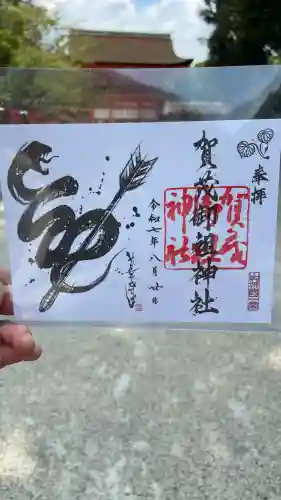 奉拝
賀茂御祖神社
賀茂
御祖
神社
令和七年八月廿日